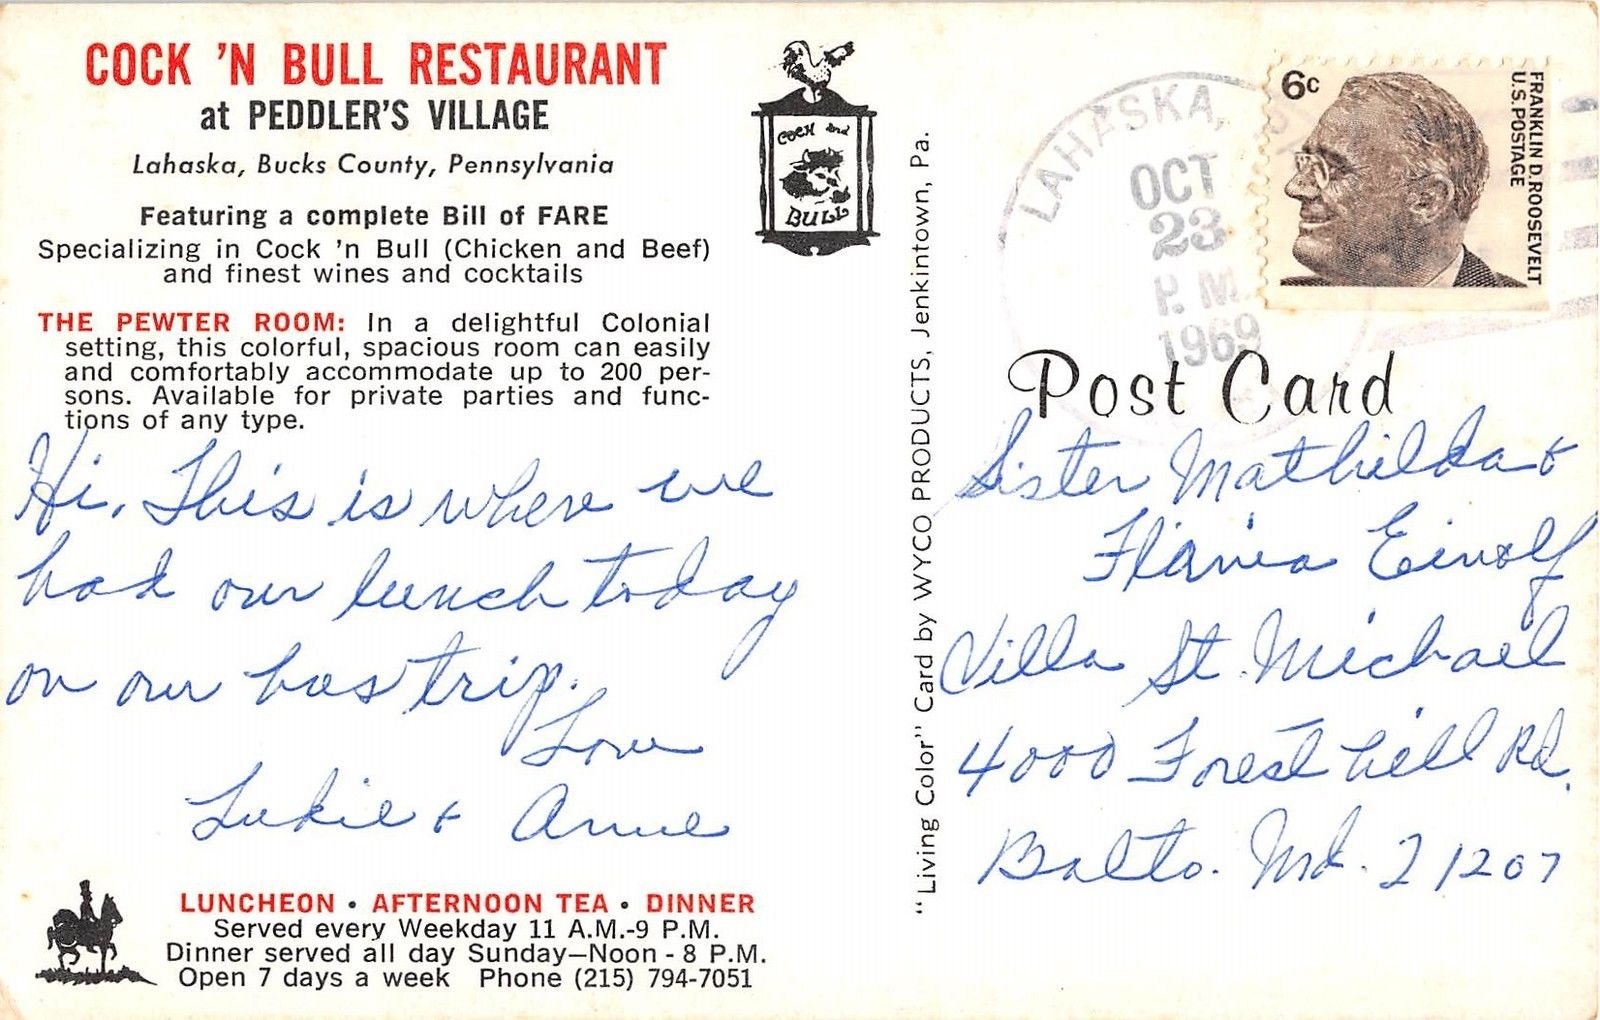 COCK 'N BULL RESTAURANT
at PEDDLER'S VILLAGE
Lahaska, Bucks County, Pennsylvania
Featuring a complete Bill of FARE
Specializing in Cock 'n Bull (Chicken and Beef)
and finest wines and cocktails
THE PEWTER ROOM: In a delightful Colonial
setting, this colorful, spacious room can easily
and comfortably accommodate up to 200 per-
sons. Available for private parties and func-
tions of any type.
COCK and
BULL
Hi, This is where we
had our lunch today
on our bus trip.
Love
Lukie & Anne
LUNCHEON • AFTERNOON TEA • DINNER
Served every Weekday 11 A.M.-9 P.M.
Dinner served all day Sunday—Noon - 8 P.M.
Open 7 days a week Phone (215) 794-7051
"Living Color" Card by WYCO PRODUCTS, Jenkintown, Pa.
LAHASKA,
OCT
23
P.M.
1969
6c
FRANKLIN D. ROOSEVELT
U.S. POSTAGE
Post Card
Sister Mathilda &
Flavia Einolf
Villa St. Michael
4000 Forest hill Rd.
Balto. Md. 21207